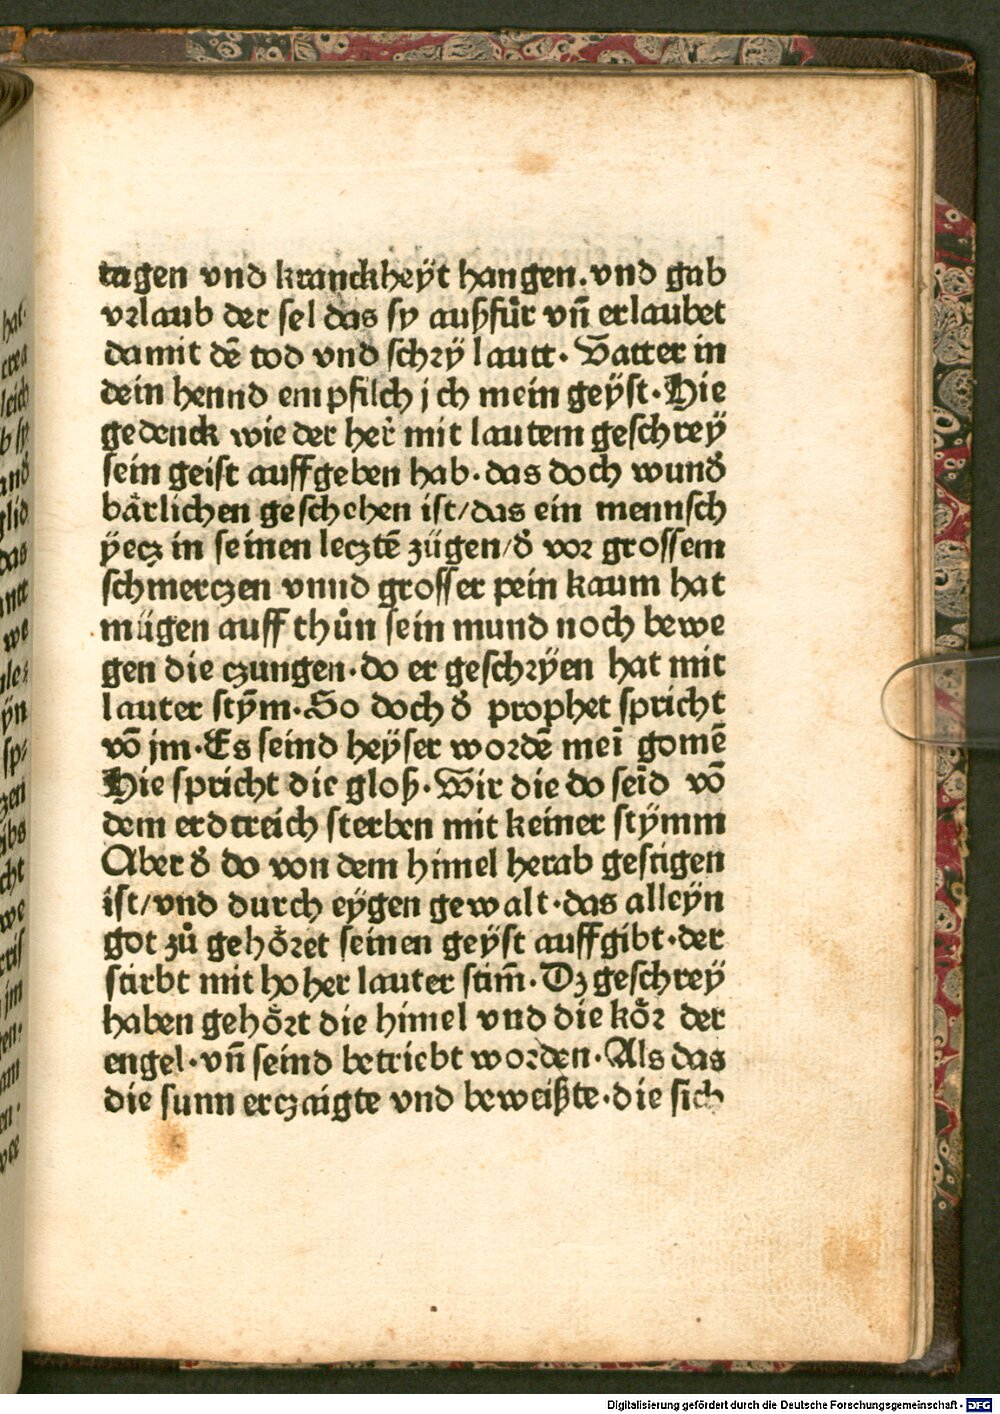 tagen vnd kranckheÿt hangen. vnd gab
vꝛlaub der sel das sy außfůr vn̄ erlaubet
damit dē tod vnd schꝛÿ lautt. Vatter in
dein hennd empfilch jch mein geÿst. Hie
gedenck wie der her̃ mit lautem geschreÿ
sein geist auffgeben hab. das doch wund᷑
bärlichen geschehen ist/das ein mennsch
ÿecz in seinen leczē zügen/d᷑ voꝛ grossem
schmerczen vnnd grosser pein kaum hat
mügen auff thůn sein mund noch bewe
gen die czungen. do er geschꝛÿen hat mit
lauter stȳm. So doch d᷑ prophet spricht
vō jm. Es seind heÿser woꝛdē mei̅ gomē
Hie spricht die gloß. Wir die do sei̅d vō
dem erdtreich sterben mit keiner stÿmm
Aber d᷑ do von dem himel herab gestigen
ist/vnd durch eÿgen gewalt. das alleÿn
got zů gehöꝛet seinen geÿst auffgibt. der
stirbt mit hoher lauter stim̄. Dz geschreÿ
haben gehöꝛt die himel vnd die köꝛ der
engel. vn̄ seind betriebt woꝛden. Als das
die sunn erczaigte vnd beweißte. die sich
hat.
leich
b sy
and᷑
glid
das
we
ÿn
zen
ibs
cht
we
jm
en.
am
en.
Digitalisierung gefördert durch die Deutsche Forschungsgemeinschaft - DFG